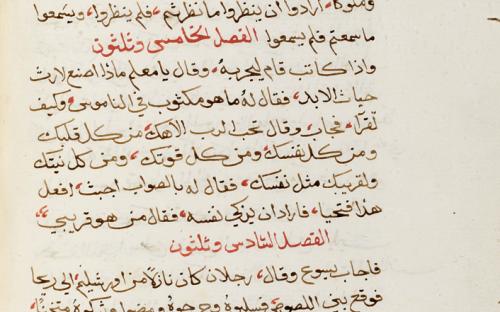 وملوكا، ارادوا ان ينظروا ما نظرتم، فلم ينظروا، ويسمعوا
ما سمعتم فلم يسمعوا الفصل الخامس وثلثون
واذا كاتب قام ليجربه، وقال يا معلم ماذا اصنع لارث
حيات الابد، فقال له ما هو مكتوب في الناموس، وكيف
تقرا، فجاب، وقال تحب الرب الاهك، من كل قلبك
ومن كل نفسك، ومن كل قوتك، ومن كل نيتك
ولقريبك مثل نفسك، فقال له بالصواب اجبت، افعل
هذا فتحيا، فاراد ان يزكي نفسه، فقال من هو قريبي،
الفصل السادس وثلثون
فاجاب يسوع وقال، رجلا كان نازلا من اورشليم، الى ريحا
فوقع بين اللصوص، فسلبوه وجرحوه ومضوا وتركوه